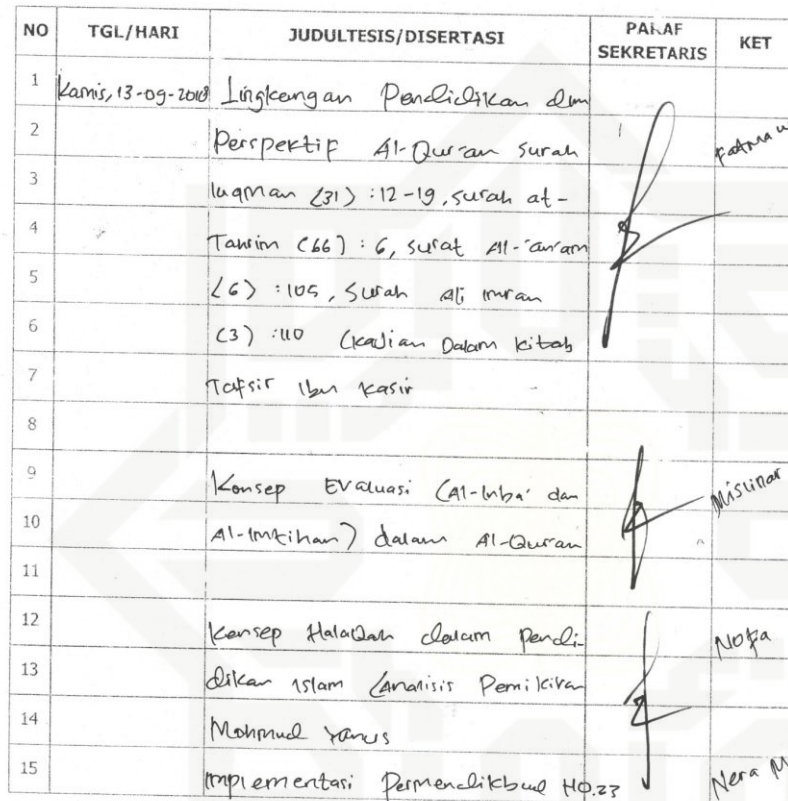 NO TGL/HARI JUDULTESIS/DISERTASI PARAF SEKRETARIS KET
1 Kamis, 13-09-2018 Lingkungan Pendidikan dlm
2 Perspektif Al-Qur'an surah Fatmaw
3 luqman (31) : 12-19, surah at-
4 Tahrim (66) : 6, surat Al-an'am
5 (6) : 105, surah ali imran
6 (3) : 110 (kajian Dalam kitab
7 Tafsir Ibnu Kasir
8
9 Konsep Evaluasi (Al-Inba' dan Mislinar
10 Al-Imtihan) dalam Al-Quran
11
12 Konsep Halaqah dalam Pendi- Nofa
13 dikan Islam (Analisis Pemikiran
14 Mahmud Yanus
15 Implementasi Permendikbud NO.23 Nera M